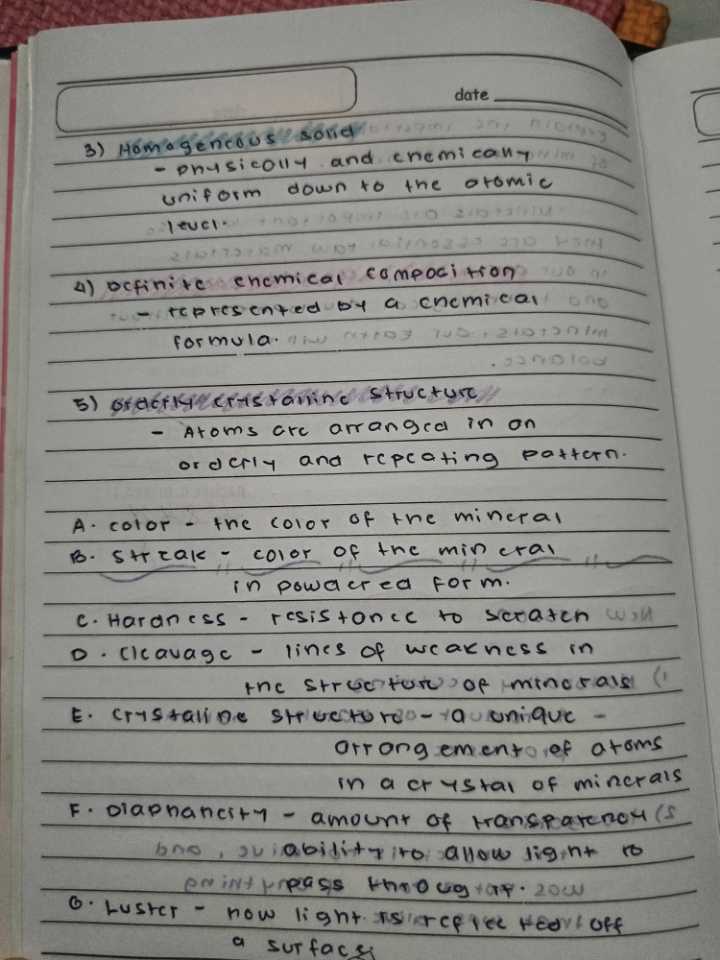 date
3) Homogeneous solid
- physically and chemically
uniform down to the atomic
level.
4) Definite chemical compocition
- represented by a chemical
formula.
5) orderly crystaline structure
- Atoms are arranged in an
orderly and repeating pattern.
A. color - the color of the mineral
B. Streak - color of the mineral
in powdered form.
C. Hardness - resistance to scratch
D. Cleavage - lines of weakness in
the structure of minerals
E. crystaline structure - a unique -
arrangement of atoms
in a crystal of minerals
F. Diaphaneity - amount of transparency
ability to allow light to
pass through
G. Luster - how light is reflected off
a surface